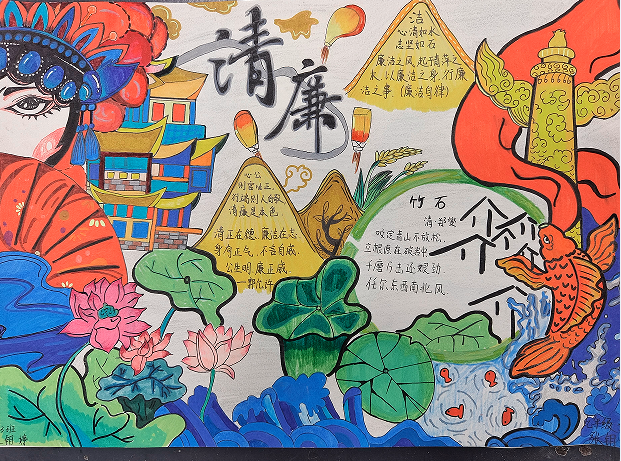 清廉
洁
心清如水
志坚如石
廉洁之风,起于清萍之
末,以廉洁之身,行廉
洁之事。(廉洁自律)
心公
则官位正,
行端别人自敬
清廉是本色
清正在德,廉洁在志。
身有正气,不言自威。
公生明,廉正威。
竹石
清·郑燮
咬定青山不放松,
立根原在破岩中。
千磨万击还坚劲,
任尔东西南北风。